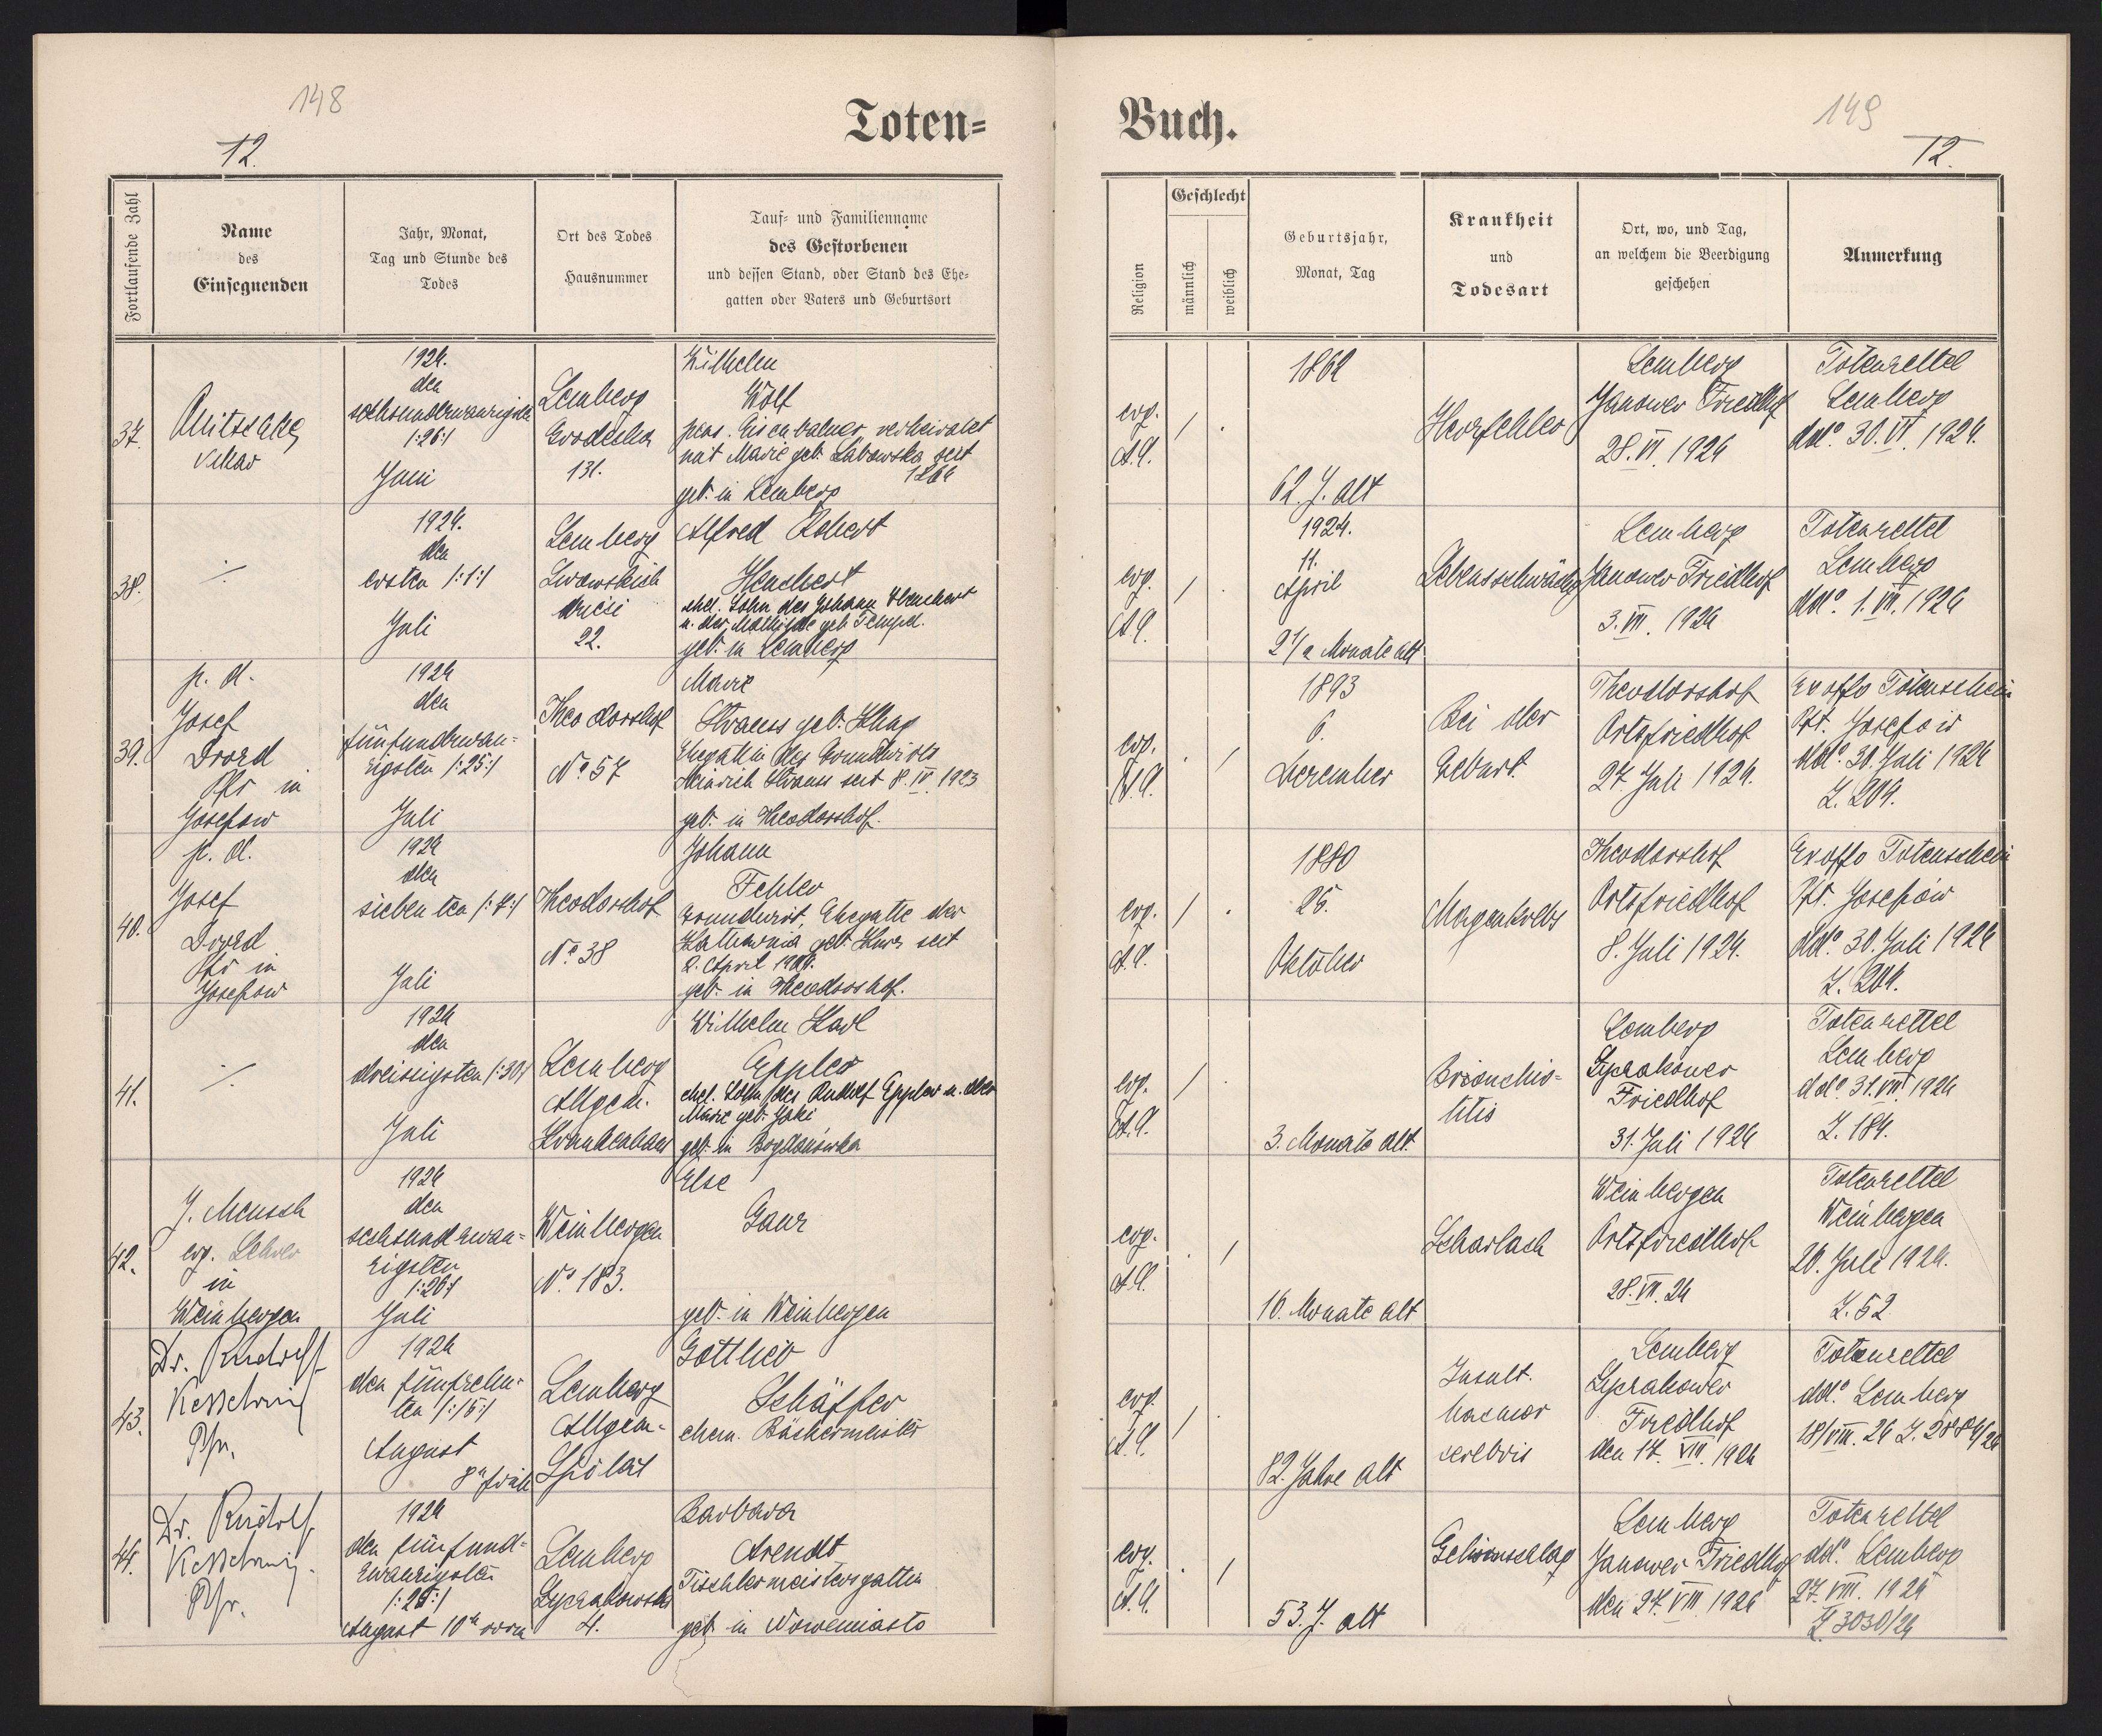 148
12.
Toten=
Fortlaufende Zahl
Name
des
Einsegnenden
Jahr, Monat,
Tag und Stunde des
Todes
Ort des Todes
Hausnummer
Tauf= und Familienname
des Gestorbenen
und dessen Stand, oder Stand des Ehe=
gatten oder Vaters und Geburtsort
37.
Vikar
1924.
den
sechsundzwanzigsten
/:26:/
Juni
Lemberg
Grodecka
131.
Wilhelm
Wolf
pens. Eisenbahner, verheiratet
mit Marie geb. seit
geb. in Lemberg
38.
1924.
den
ersten /:1:/
Juli
Lemberg
22.
Alfred Robert
Henchert
ehel. Sohn des Johann Henchert
u. der Mathilde geb. Tempel.
geb. in Lemberg
39.
p. d.
Josef
Drozd
Pfr in
Josefow
1924
den
fünfundzwan=
zigsten /:25:/
Juli
Theodorshof
No 57
Marie
Strauss geb. Kling
Ehegattin des Grundwirts
Heinrich Strauss seit 8. IV. 1923
geb. in Theodorshof.
40.
p. d.
Josef
Drozd
Pfr in
Josefow
1924
den
siebenten /:7:/
Juli
Theodorshof
No 38
Johann
Fehler
Grundwirt, Ehegatte der
Katharina geb. seit
2. April
geb. in Theodorshof.
41.
1924
den
dreissigsten /:30:/
Juli
Lemberg
Allgem.
Krankenhaus
Wilhelm Karl
Eppler
ehel. Sohn des Rudolf Eppler u. der
Marie geb. Jaki
geb. in Bogdanówka
42.
J. Mensch
evg. Lehrer
in
Weinbergen
1924
den
sechsundzwan=
zigsten
/:26:/
Juli
Weinbergen
No 183.
Else
Ganz
geb. in Weinbergen
43.
Dr. Rudolf
Kesselring
Pfr.
1924
den fünfzehn=
ten /:15:/
August
8h früh
Lemberg
Allgem.
Spital
Gottlieb
Schäffer
ehem. Bäckermeister
44.
Dr. Rudolf
Kesselring.
Pfr.
1924
den fünfund=
zwanzigsten
/:25:/
August 10h vorm
Lemberg
Lyczakowska
4.
Barbara
Arendt
Tischlermeistersgattin
geb. in Nowemiasto
Buch.
149
12.
Religion
Geschlecht
männlich
weiblich
Geburtsjahr,
Monat, Tag
Krankheit
und
Todesart
Ort, wo, und Tag,
an welchem die Beerdigung
geschehen
Anmerkung
evg.
A.C.
/
.
1862
62. J. alt
Herzfehler
Lemberg
Janower Friedhof
28. VI. 1924
Totenzettel
Lemberg
ddo 30. VI. 1924.
evg.
A.C.
/
.
1924.
11.
April
2 1/2 Monate alt
Lebensschwäche
Lemberg
Janower Friedhof
3. VII. 1924
Totenzettel
Lemberg
ddo 1. VII. 1924
evg.
A.C.
.
/
1893
6.
Dezember
Bei der
Geburt.
Theodorshof
Ortsfriedhof
27. Juli 1924.
Ex offo Totenschein
Pft. Josefow
ddo 30. Juli 1924
Z. 204.
evg.
A.C.
/
.
1880
26.
Oktober
Magenkrebs
Theodorshof
Ortsfriedhof
8. Juli 1924.
Ex offo Totenschein
Pft. Josefów
ddo 30. Juli 1924
Z. 204.
evg.
A.C.
/
.
3. Monate alt.
Bronchio-
titis
Lemberg
Lyczakower
Friedhof
31. Juli 1924
Totenzettel
Lemberg
ddo 31. VII. 1924
Z. 184.
evg.
A.C.
.
/
16. Monate alt
Scharlach
Weinbergen
Ortsfriedhof
28. VII. 24
Totenzettel
Weinbergen
26. Juli 1924.
Z. 52
evg.
A.C.
/
.
82. Jahre alt
Insult.
haemor
cerebris
Lemberg
Lyczakower
Friedhof
den 17. VIII. 1924
Totenzettel
ddo. Lemberg
18/VIII. 24 Z.
evg.
A.C.
.
/
53. J. alt
Gehirnschlag
Lemberg
Janower Friedhof
den 27. VIII 1924
Totenzettel
ddo. Lemberg
27. VIII. 1924
Z. 3030/24